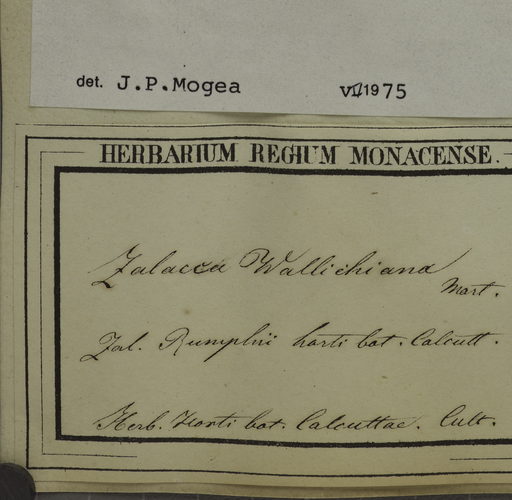 det. J.P.Mogea VII1975
HERBARIUM REGIUM MONACENSE.
Zalacca Wallichiana
Mart.
Zal. Rumphii horti bot. Calcutt.
Herb. Horti bot. Calcuttae. Cult.